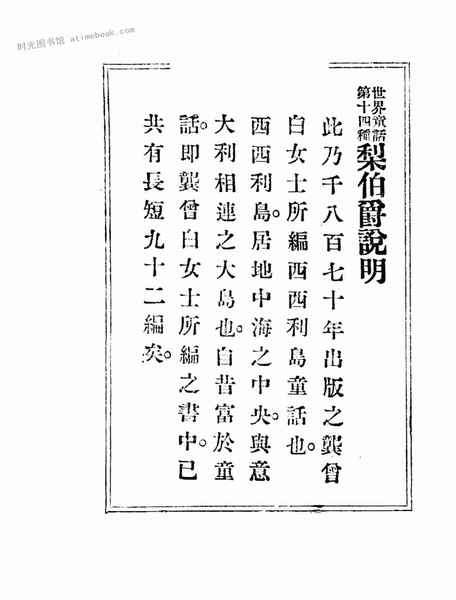 时光图书馆 atimebook.com
世界童話
第十四種
梨伯爵說明
此乃千八百七十年出版之龔曾
白女士所編西西利島童話也。
西西利島。居地中海之中央。與意
大利相連之大島也。自昔富於童
話。即龔曾白女士所編之書中。已
共有長短九十二編矣。